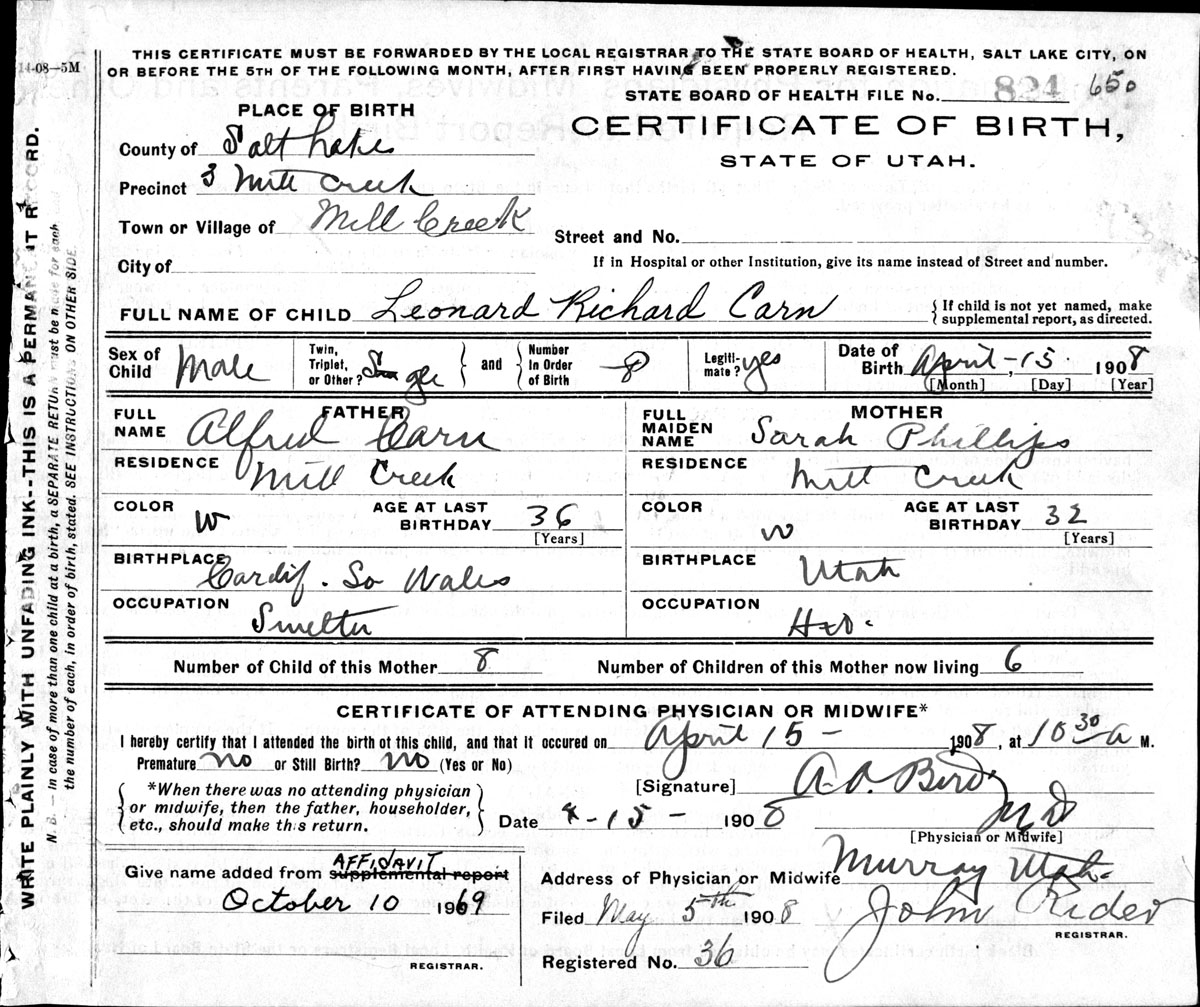 THIS CERTIFICATE MUST BE FORWARDED BY THE LOCAL REGISTRAR TO THE STATE BOARD OF HEALTH, SALT LAKE CITY, ON
14-08—5M
OR BEFORE THE 5TH OF THE FOLLOWING MONTH, AFTER FIRST HAVING BEEN PROPERLY REGISTERED.
STATE BOARD OF HEALTH FILE No. 824 650
PLACE OF BIRTH
CERTIFICATE OF BIRTH,
STATE OF UTAH.
County of Salt Lake
Precinct 3 Mill Creek
Town or Village of Mill Creek
Street and No.
City of
If in Hospital or other Institution, give its name instead of Street and number.
FULL NAME OF CHILD Leonard Richard Carn
{If child is not yet named, make
supplemental report, as directed.
Sex of Child Male
Twin, Triplet, or Other?
and
Number in Order of Birth 8
Legiti-mate? yes
Date of Birth April - 15 1908
[Month] [Day] [Year]
FATHER
FULL NAME Alfred Carn
RESIDENCE Mill Creek
COLOR W
AGE AT LAST BIRTHDAY 36
[Years]
BIRTHPLACE Cardif. So Wales
OCCUPATION Smelter
MOTHER
FULL MAIDEN NAME Sarah Phillips
RESIDENCE Mill Creek
COLOR W
AGE AT LAST BIRTHDAY 32
[Years]
BIRTHPLACE Utah
OCCUPATION
Number of Child of this Mother 8
Number of Children of this Mother now living 6
CERTIFICATE OF ATTENDING PHYSICIAN OR MIDWIFE*
I hereby certify that I attended the birth of this child, and that it occured on April 15 - 1908, at 10 30 A M.
Premature No or Still Birth? No (Yes or No)
*When there was no attending physician
or midwife, then the father, householder,
etc., should make this return.
[Signature] A. O. Bird
MD
Date 4-15- 1908
[Physician or Midwife]
AFFIDAVIT
Give name added from supplemental report
October 10 1969
REGISTRAR.
Address of Physician or Midwife Murray Utah.
Filed May 5th 1908 John Rider
REGISTRAR.
Registered No. 36
WRITE PLAINLY WITH UNFADING INK--THIS IS A PERMANENT RECORD.
N. B.—In case of more than one child at a birth, a SEPARATE RETURN must be made for each and
the number of each, in order of birth, stated. SEE INSTRUCTIONS ON OTHER SIDE.